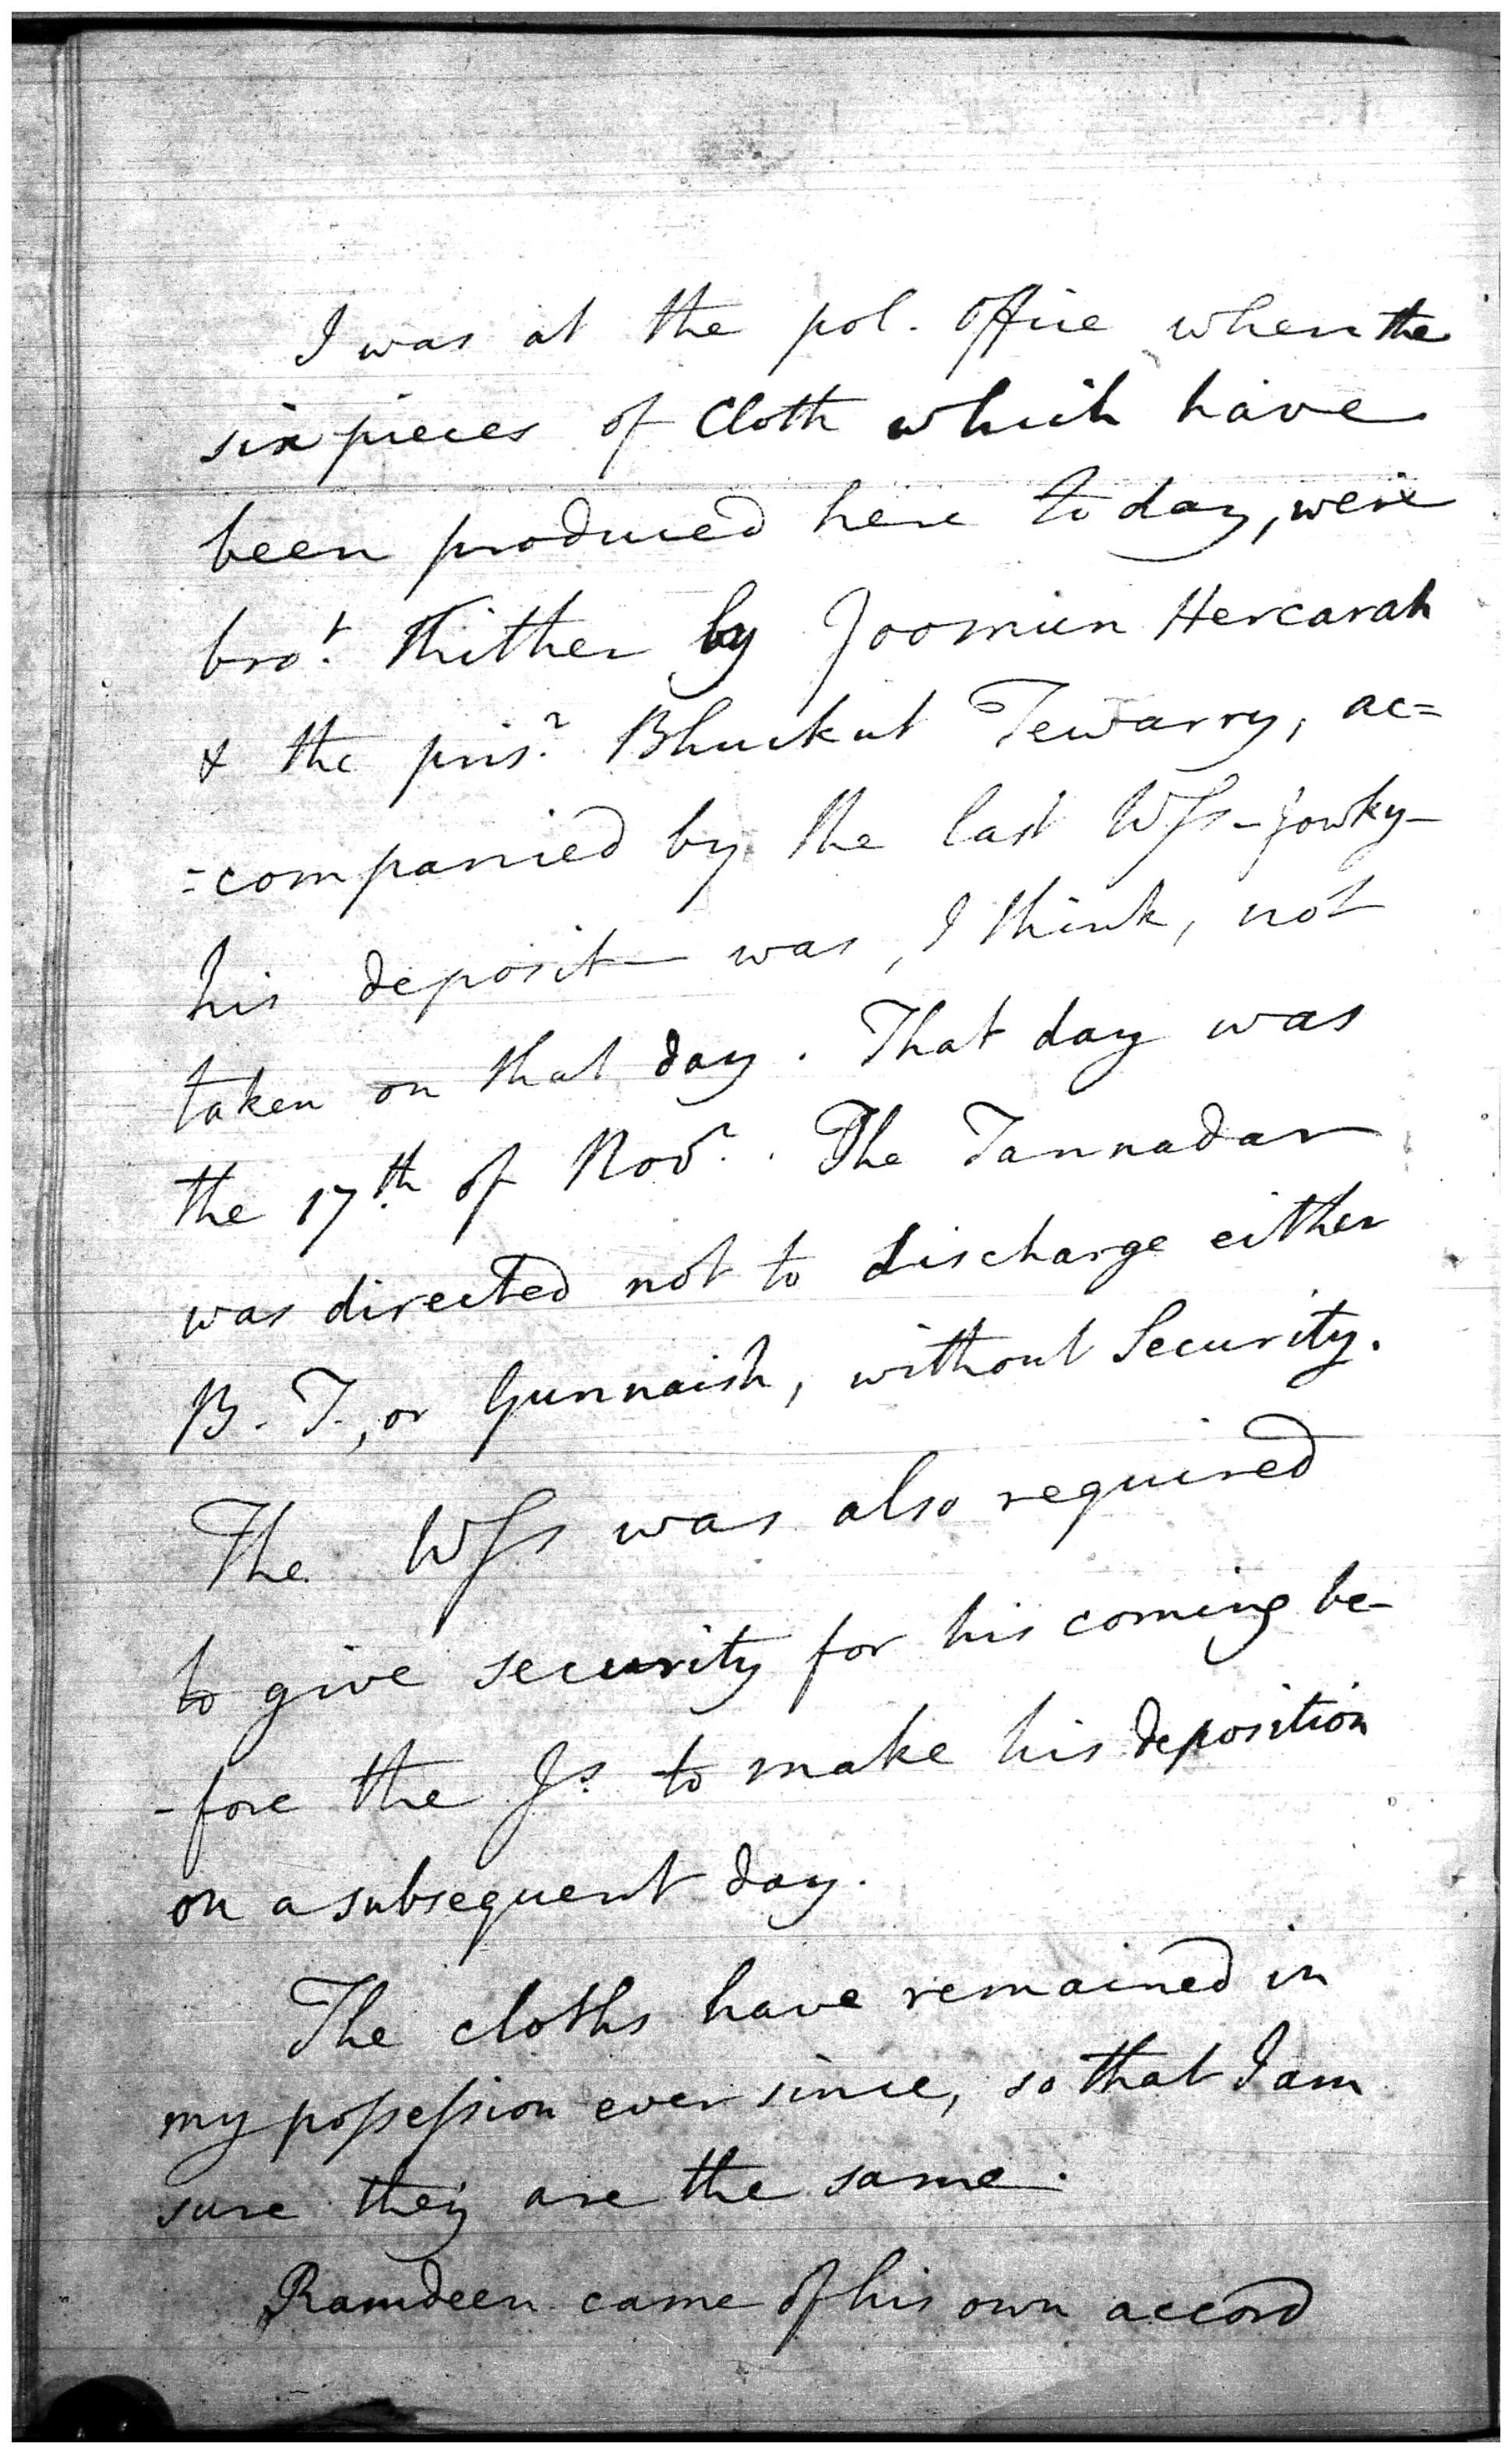 I was at the pol. Office when the
six pieces of Cloth which have
been produced here to day, were
bro.t thither by Joomun Hercarah
& the pris.r Bhuckut Tewarry, ac=
=companied by the last Wſs – Jowky –
his deposit– was, I think, not
taken on that day. That day was
the 17.th of Nov.r. The Tannadar
was directed not to discharge either
B. T., or Gunnaish, without Security.
The Wſs was also required
to give security for his coming be-
-fore the Js. to make his deposition
on a subsequent day.
The cloths have remained in
my poſseſsion ever since, so that I am
sure they are the same.
Ramdeen came of his own accord